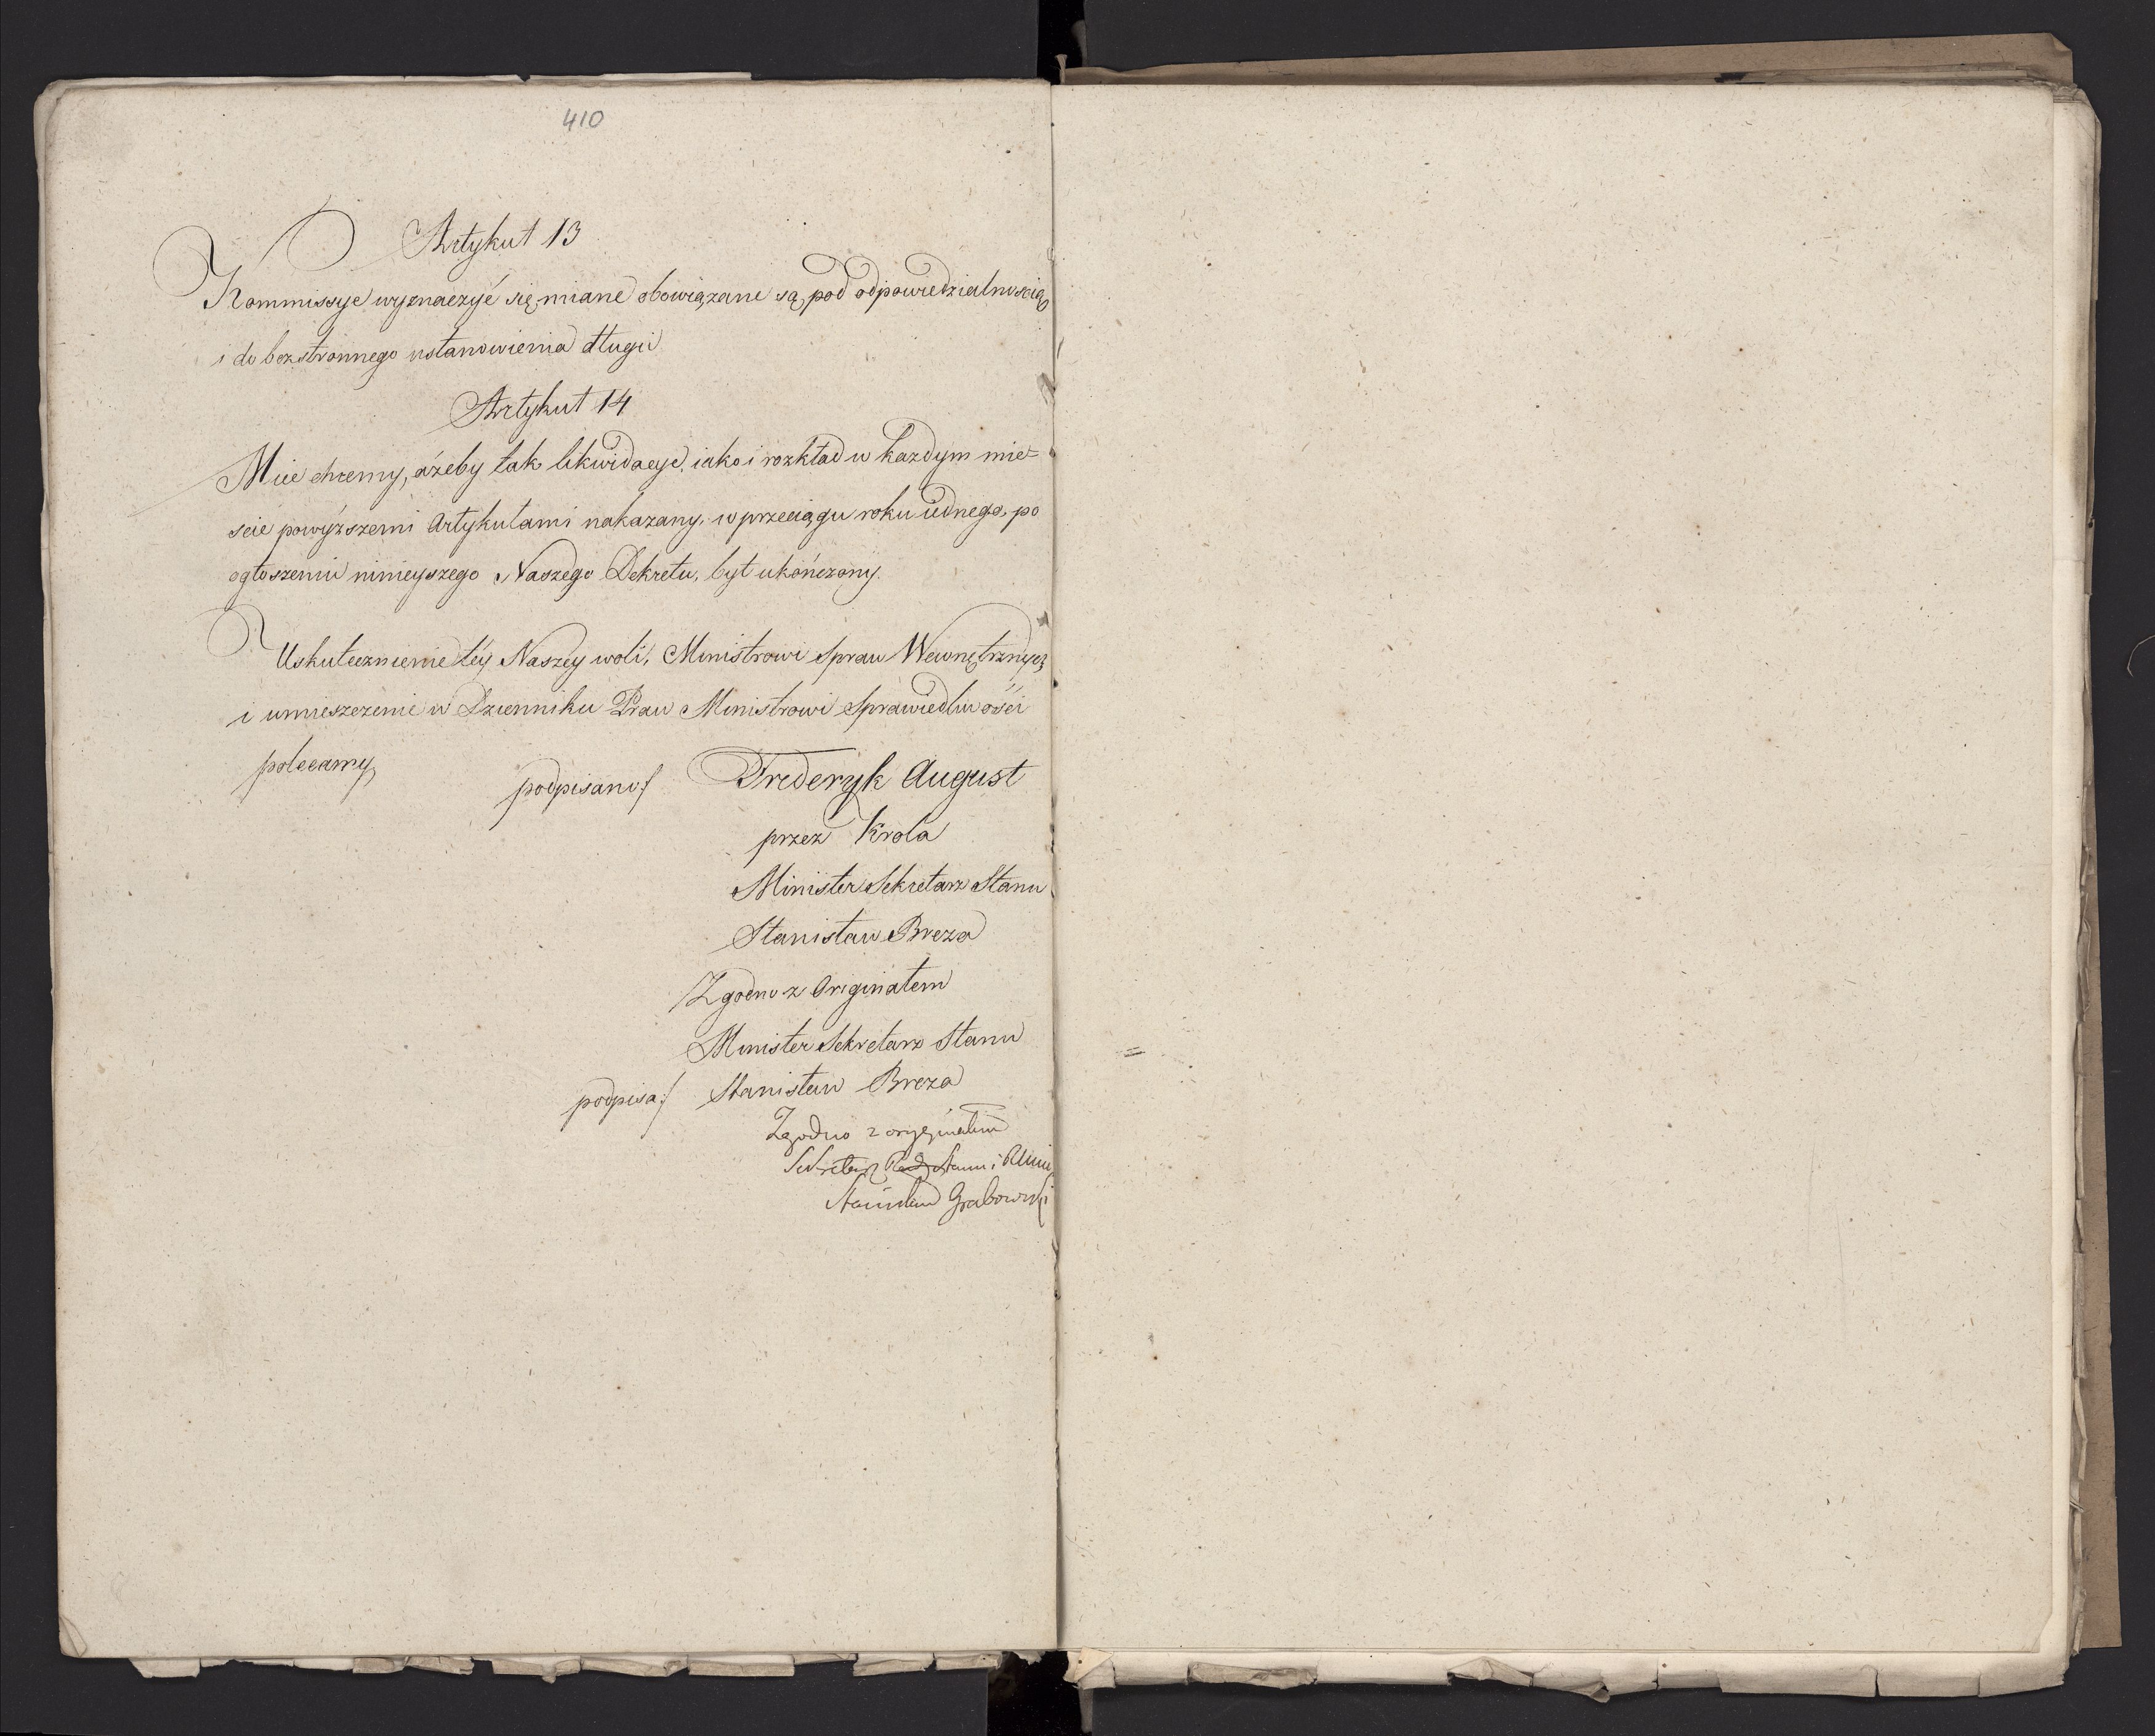 410
Artykuł 13
Kommissye wyznaczyć się miane obowiązane są, pod odpowiedzialnoscią
i do bezstronnego ustanowienia długu
Artykuł 14
Mieć chcemy, ażeby tak likwidacye, iako i rozkład w każdym mie=
scie powyższemi Artykułami nakazany, w przeciągu roku iednego, po
ogłoszeniu ninieyszego Naszego Dekretu, był ukończony.
Uskutecznienie téy Naszéy woli, Ministrowi Spraw Wewnętrznych
i umieszczenie w Dzienniku Praw Ministrowi Sprawiedliwości
polecamy
podpisano/ Frederyk August
przez Krola
Minister Sekretarz Stanu
Stanisław Breza
Zgodno z Originałem
Minister Sekretarz Stanu
podpisa:/ Stanisław Breza
Zgodno z oryginałem
Sekretarz Rady Stanu i
Stanisław Grabowski